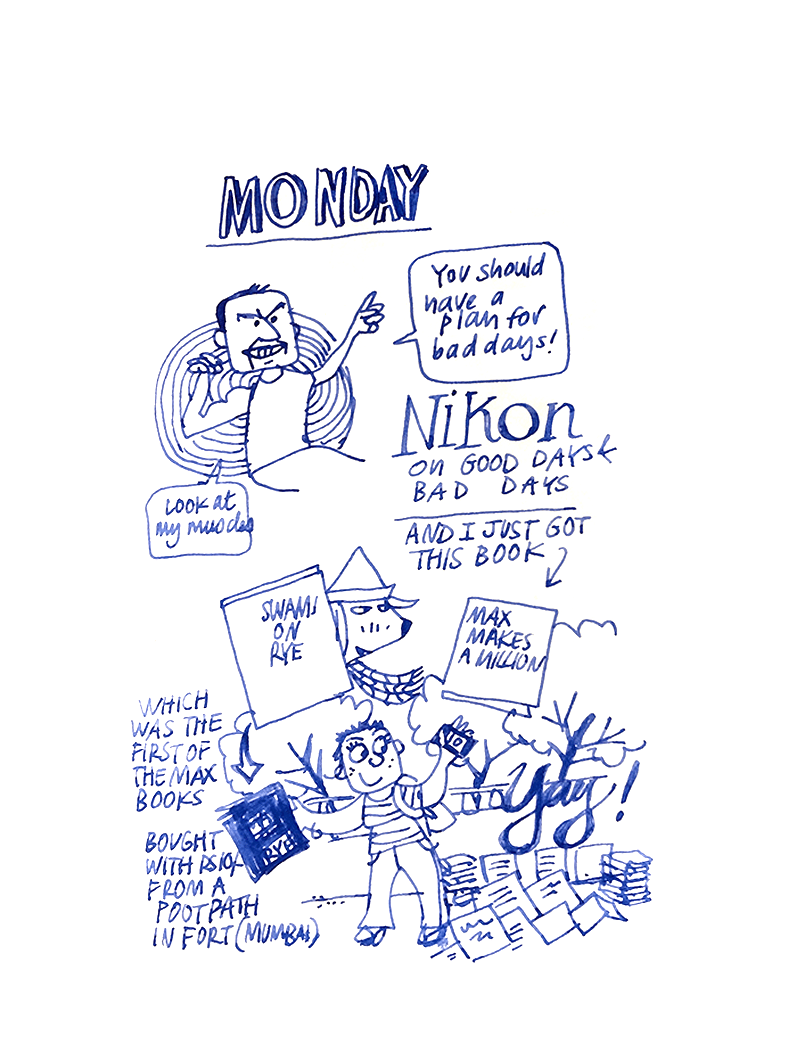 MONDAY
You should
have a
plan for
bad days!
Look at
my muscles
Nikon
ON GOOD DAYS &
BAD DAYS
AND I JUST GOT
THIS BOOK
SWAMI
ON
RYE
MAX
MAKES
A MILLION
WHICH
WAS THE
FIRST OF
THE MAX
BOOKS
10
Yay!
RYE
BOUGHT
WITH RS10/-
FROM A
FOOTPATH
IN FORT (MUMBAI)